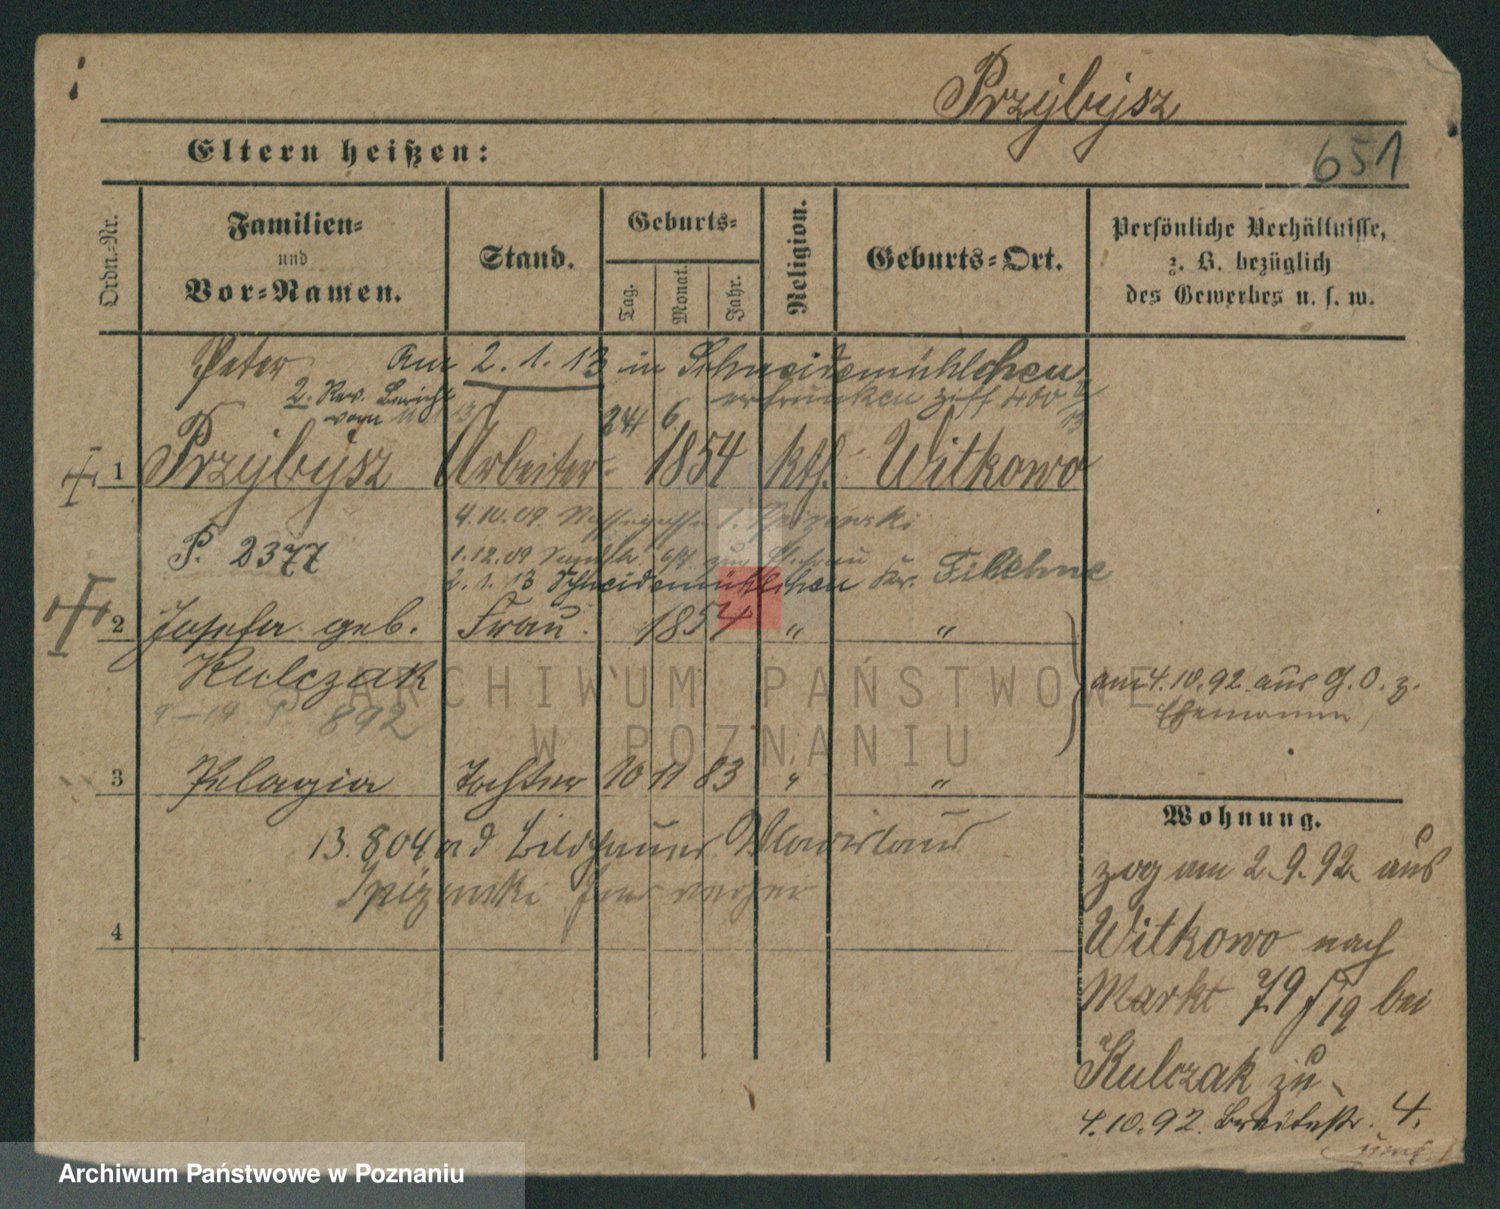 Przybysz
651
Eltern heißen:
Ordn.-Nr.
Familien-
und
Vor-Namen.
Stand.
Geburts-
Tag.
Monat.
Jahr.
Religion.
Geburts-Ort.
Persönliche Verhältnisse,
z. B. bezüglich
des Gewerbes u. s. w.
Peter Am 2. 1. 13 in Schneidemühlchen
2. Rev. Bericht ertrunken Ziff 400
vom 24 6.
1 Przybysz Arbeiter 1854 kth. Witkowo
4.10.09
P. 2377
1.12.09
2. 1. 13 Schneidemühlchen Kr. Filehne
2 Josefa geb. Frau. 1854 " "
Kulczak
am 4.10.92 aus G. O. z.
Ehemann
9-14 P 892
3 Pelagia Tochter 10 11 83 " "
13.8.04 ad Bildhauer Wladislaus
4
Wohnung.
zog am 2.9.92 aus
Witkowo nach
Markt 79 bei
Kulczak zu
4.10.92. Breitestr. 4.
ARCHIWUM PAŃSTWOWE
W POZNANIU
Archiwum Państwowe w Poznaniu